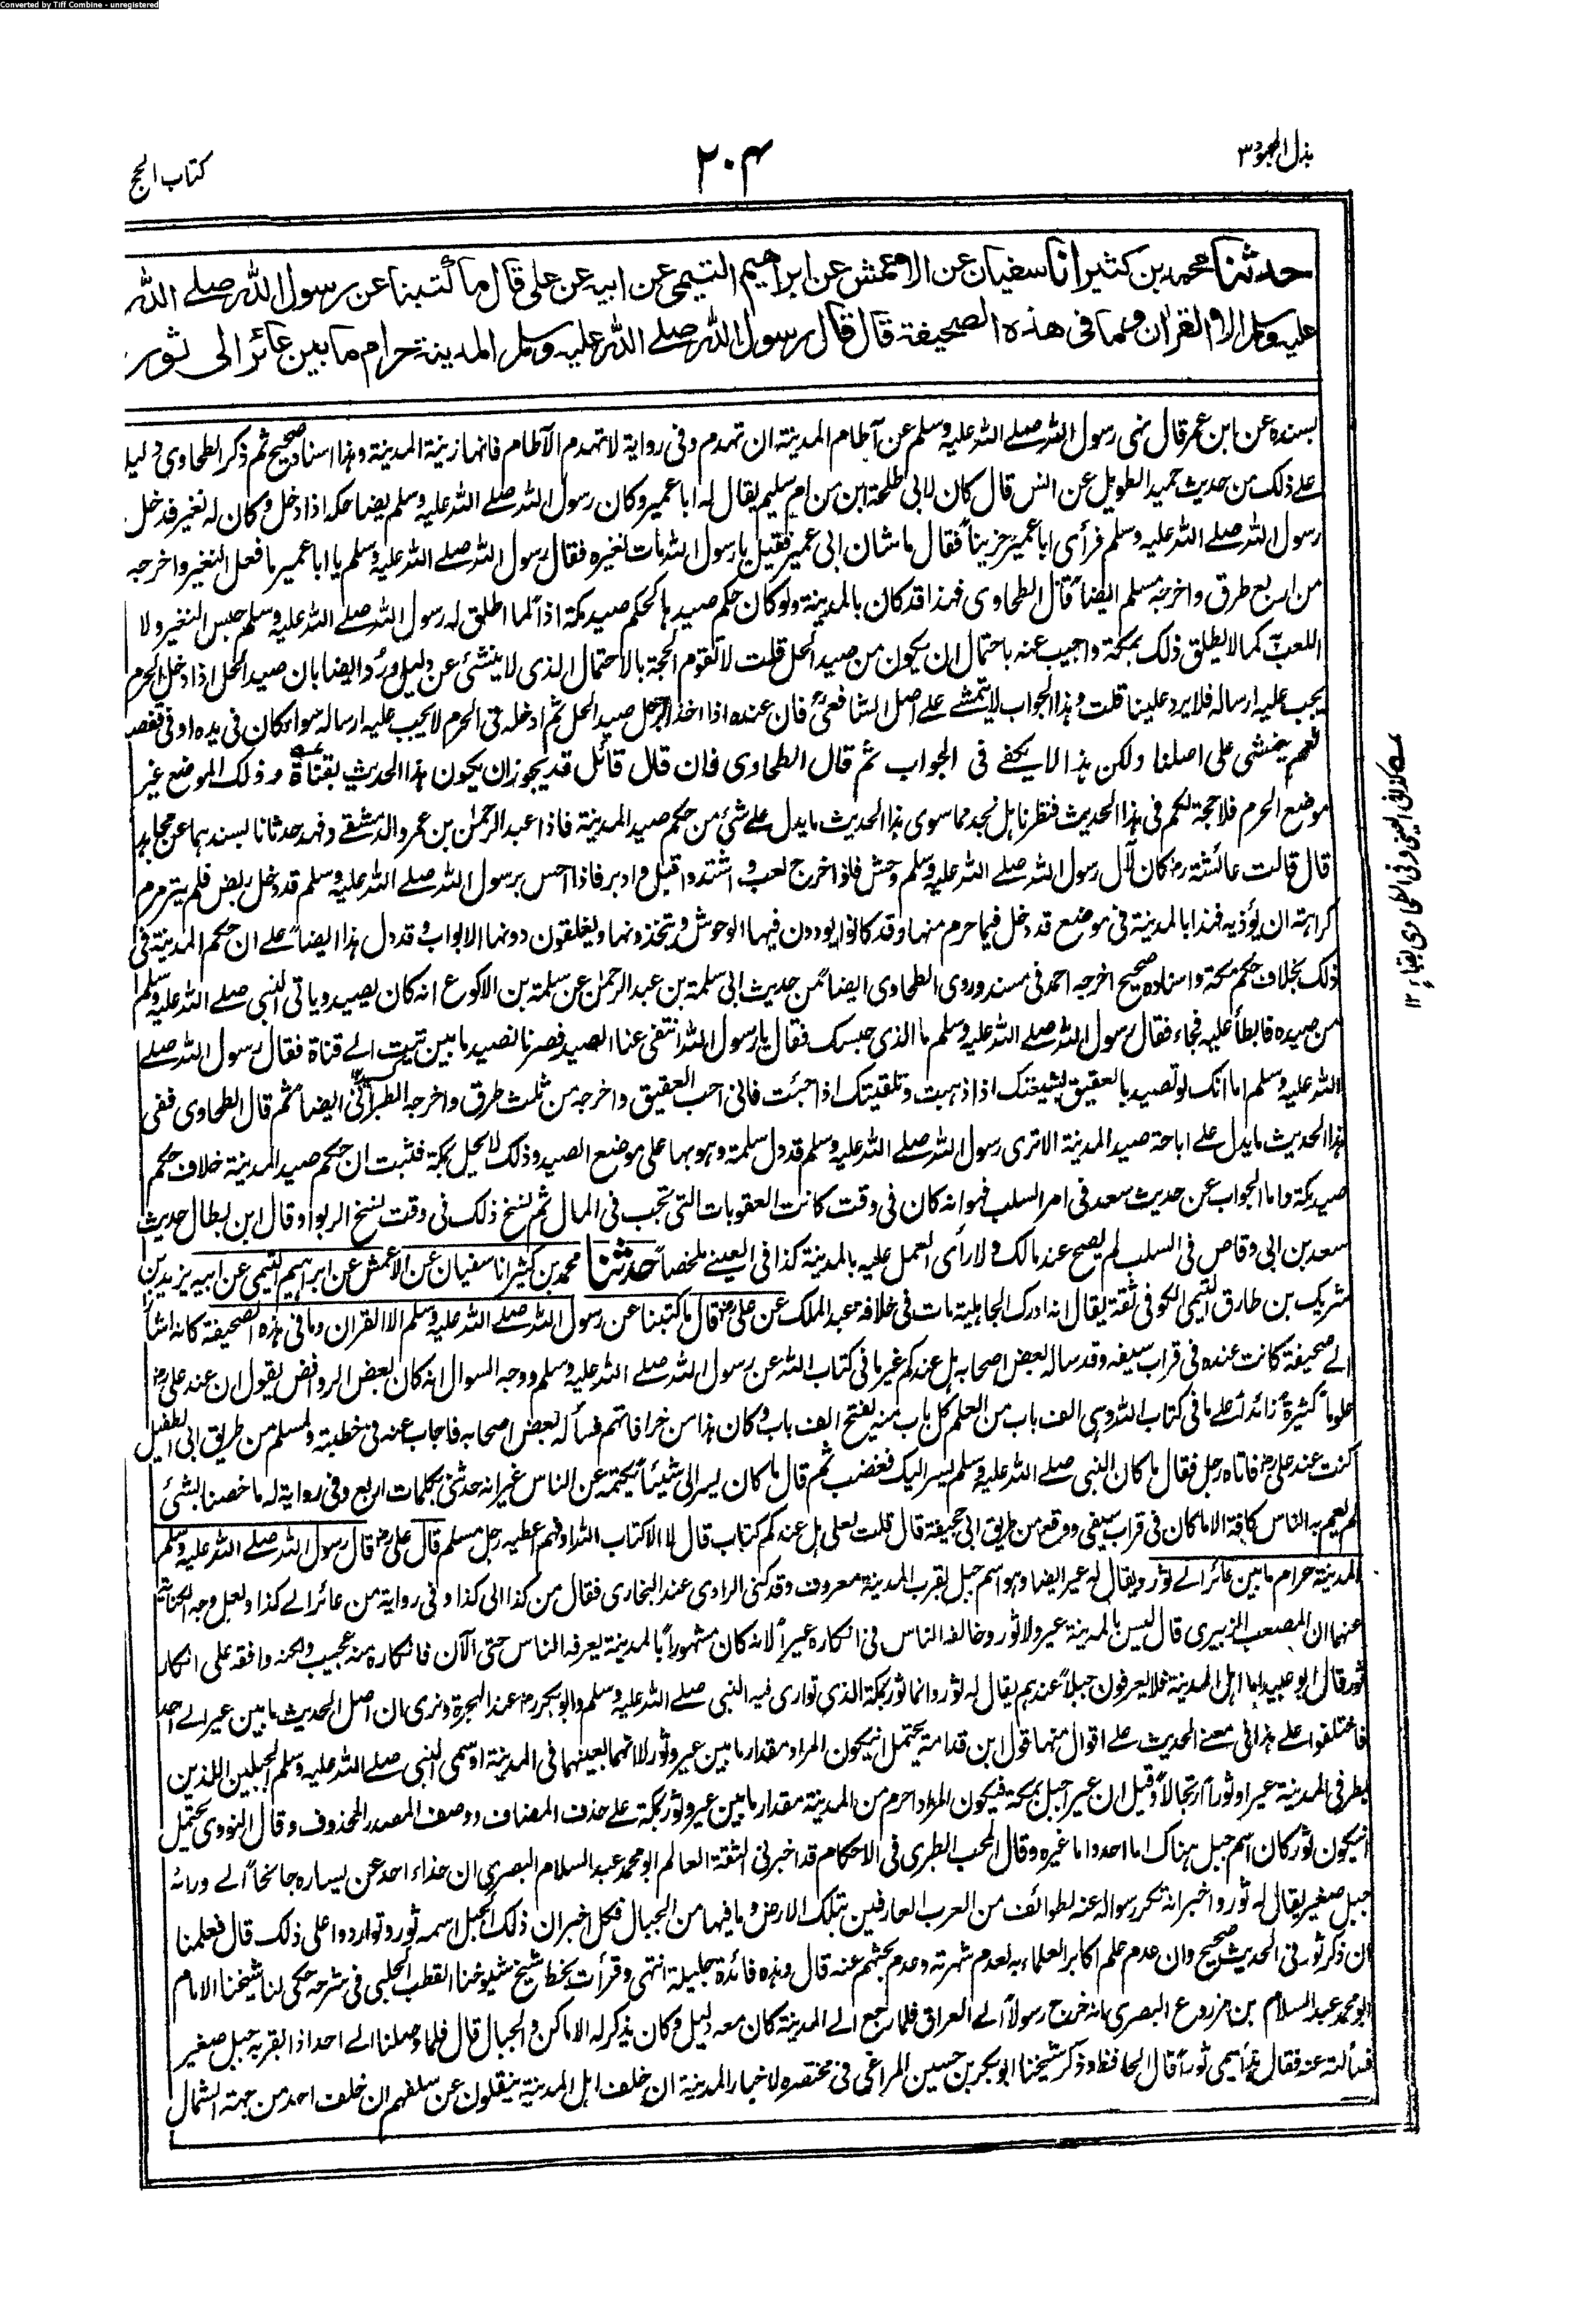 Converted by Tiff Combine - unregistered
بذل المجهود ٣
٢٠٤
كتاب الحج
حدثنا محمد بن كثير انا سفيان عن الاعمش عن ابراهيم التيمى عن ابيه عن على قال ما كتبنا عن رسول الله صلے الله
عليه وسلم الا القران وما فى هذه الصحيفة قال قال رسول الله صلے الله عليه وسلم المدينة حرام ما بين عائر الى ثور
بسنده عن ابن عمر قال نهى رسول الله صلے الله عليه وسلم عن آطام المدينة ان تهدم وفى رواية لا تهدم الآطام فانها زينة المدينة وهذا اسناد صحيح ثم ذكر الطحاوى دليلا
علے ذلك من حديث حميد الطويل عن انس قال كان لابى طلحة ابن من ام سليم يقال له ابا عمير وكان رسول الله صلے الله عليه وسلم يضاحكه اذا دخل وكان له نغير فدخل
رسول الله صلے الله عليه وسلم فرأى ابا عمير حزيناً فقال ما شان ابى عمير فقيل يا رسول الله مات نغيره فقال رسول الله صلے الله عليه وسلم يا ابا عمير ما فعل النغير واخرجه
من اربع طرق واخرجه مسلم ايضاً قال الطحاوى فهذا قد كان بالمدينة ولو كان حكم صيدها كحكم صيد مكة اذاً لما اطلق له رسول الله صلے الله عليه وسلم حبس النغير ولا
اللعب به كما لا يطلق ذلك بمكة واجيب عنه باحتمال ان يكون من صيد الحل قلت لا تقوم الحجة بالاحتمال الذى لا ينشئ عن دليل ورُد ايضا بان صيد الحل اذا دخل الحرم
يجب عليه ارساله فلا يرد علينا قلت وهذا الجواب لا يتمشے علے اصل الشافعىؒ فان عنده اذا اخذ الرجل صيد الحل ثم ادخله فى الحرم لا يجب عليه ارساله سواء كان فى يده او فى قفص
نعم يتمشى على اصلنا ولكن هذا لا يكفے فى الجواب ثم قال الطحاوى فان قال قائل قد يجوز ان يكون هذا الحديث بقناة وذلك الموضع غير
موضع الحرم فلا حجة لكم فى هذا الحديث فنظرنا هل نجد مما سوى هذا الحديث ما يدل علے شئ من حكم صيد المدينة فاذا عبد الرحمن بن عمرو الدمشقے وفهد حدثانا بسندهما عن مجاهد
قال قالت عائشة رض كان لآل رسول الله صلے الله عليه وسلم وحش فاذا خرج لعب واشتد واقبل وادبر فاذا احس برسول الله صلے الله عليه وسلم قد دخل ربض فلم يترمرم
كراهة ان يؤذيه فهذا بالمدينة فى موضع قد دخل فيما حرم منها وقد كانوا يؤوون فيها الوحوش ويتخذونها ويغلقون دونها الابواب وقد دل هذا ايضاً علے ان حكم المدينة فى
ذلك بخلاف حكم مكة واسناده صحيح اخرجه احمد فى مسنده وروى الطحاوى ايضاً من حديث ابى سلمة بن عبد الرحمن عن سلمة بن الاكوع انه كان يصيد وياتى النبى صلے الله عليه وسلم
من صيده فابطأ عليه فجاء فقال رسول الله صلے الله عليه وسلم ما الذى حبسك فقال يا رسول الله انتفى عنا الصيد فصرنا نصيد ما بين تيت الے قناة فقال رسول الله صلے
الله عليه وسلم اما انك لو تصيد بالعقيق لشيعتك اذا ذهبت وتلقيتك اذا جئت فانى احب العقيق واخرجه من ثلث طرق واخرجه الطبرانى ايضا ثم قال الطحاوى ففى
هذا الحديث ما يدل علے اباحة صيد المدينة الا ترى رسول الله صلے الله عليه وسلم قد دل سلمة وهو بها على موضع الصيد وذلك لا يحل بمكة فثبت ان حكم صيد المدينة خلاف حكم
صيد مكة واما الجواب عن حديث سعد فى امر السلب فهو انه كان فى وقت كانت العقوبات التى تجب فى المال ثم نسخ ذلك فى وقت نسخ الربوا وقال ابن بطال حديث
سعد بن ابى وقاص فى السلب لم يصح عند مالك ولا رأى العمل عليه بالمدينة كذا فى العينے ملخصاً حدثنا محمد بن كثير انا سفيان عن الاعمش عن ابراهيم التيمى عن ابيه يزيد بن
شريك بن طارق التيمى الكوفى ثقة يقال انه ادرك الجاهلية مات فى خلافة عبد الملك عن على رض قال ما كتبنا عن رسول الله صلے الله عليه وسلم الا القران وما فى هذه الصحيفة كانه اشار
الے صحيفة كانت عنده فى قراب سيفه وقد ساله بعض اصحابه هل عندكم غير ما فى كتاب الله عن رسول الله صلے الله عليه وسلم ووجه السوال انه كان بعض الروافض يقول ان عند على رض
علوماً كثيرةً زائدةً علے ما فى كتاب الله وهى الف باب من العلم كل باب منه يفتح الف باب وكان هذا من خرافاتهم فسأله بعض اصحابه فاجاب عنه فى خطبته ولمسلم من طريق ابى الطفيل
كنت عند على رض فاتاه رجل فقال ما كان النبى صلے الله عليه وسلم يسر اليك فغضب ثم قال ما كان يسر الى شيئاً يكتمه عن الناس غير انه حدثنى بكلمات اربع وفى رواية له ما خصنا بشئ
لم يعم به الناس كافة الا ما كان فى قراب سيفى ووقع من طريق ابى جحيفة قال قلت لعلى هل عندكم كتاب قال لا الا كتاب الله او فهم اعطيه رجل مسلم قال على رض قال رسول الله صلے الله عليه وسلم
المدينة حرام ما بين عائر الے ثور ويقال له عير ايضا وهو اسم جبل بقرب المدينة معروف وقد كنى الراوى عند البخارى فقال من كذا الى كذا وفى رواية من عائر الے كذا ولعل وجه الكناية
عنهما ان المصعب الزبيرى قال ليس بالمدينة عير ولا ثور وخالفه الناس فى انكاره عيراً لانه كان مشهوراً بالمدينة يعرفه الناس حتى الآن فانكاره منه عجيب ولكنه وافقه على انكار
ثور قال ابو عبيد اما اهل المدينة فلا يعرفون جبلاً عندهم يقال له ثور وانما ثور بمكة الذى توارى فيه النبى صلے الله عليه وسلم وابو بكر رض عند الهجرة ونرى ان اصل الحديث ما بين عير الے احد
فاختلفوا علے هذا فى معنے الحديث علے اقوال منها قول ابن قدامة يحتمل ان يكون المراد مقدار ما بين عير وثور لا انهما بعينهما فى المدينة او سمى النبى صلے الله عليه وسلم الجبلين اللذين
بطرفى المدينة عيرا وثوراً ارتجالاً وقيل ان عير جبل بمكة فيكون المراد احرم من المدينة مقدار ما بين عير وثور بمكة علے حذف المضاف ووصف المصدر المحذوف وقال النووى يحتمل
ان يكون ثور كان اسم جبل هناك اما احد واما غيره وقال المحب الطبرى فى الاحكام قد اخبرنى الثقة العالم ابو محمد عبد السلام البصرى ان حذاء احد عن يساره جانحاً الے ورائه
جبل صغير يقال له ثور واخبر انه تكرر سواله عنه لطوائف من العرب العارفين بتلك الارض وما فيها من الجبال فكل اخبر ان ذلك الجبل اسمه ثور وتواردوا على ذلك قال فعلمنا
ان ذكر ثور فى الحديث صحيح وان عدم علم اكابر العلماء به لعدم شهرته وعدم بحثهم عنه قال وهذه فائدة جليلة انتهى وقرأت بخط شيخ شيوخنا القطب الحلبى فى شرحه حكى لنا شيخنا الامام
ابو محمد عبد السلام بن مزروع البصرى انه خرج رسولاً الے العراق فلما رجع الے المدينة كان معه دليل وكان يذكر له الاماكن والجبال قال فلما وصلنا الے احد اذا بقربه جبل صغير
فسألته عنه فقال هذا يسمى ثوراً قال الحافظ وذكر شيخنا ابو بكر بن حسين المراغى فى مختصره لاخبار المدينة ان خلف اهل المدينة ينقلون عن سلفهم ان خلف احد من جهة الشمال
كذا فى العينى وفى الطحاوى بقباء ١٢